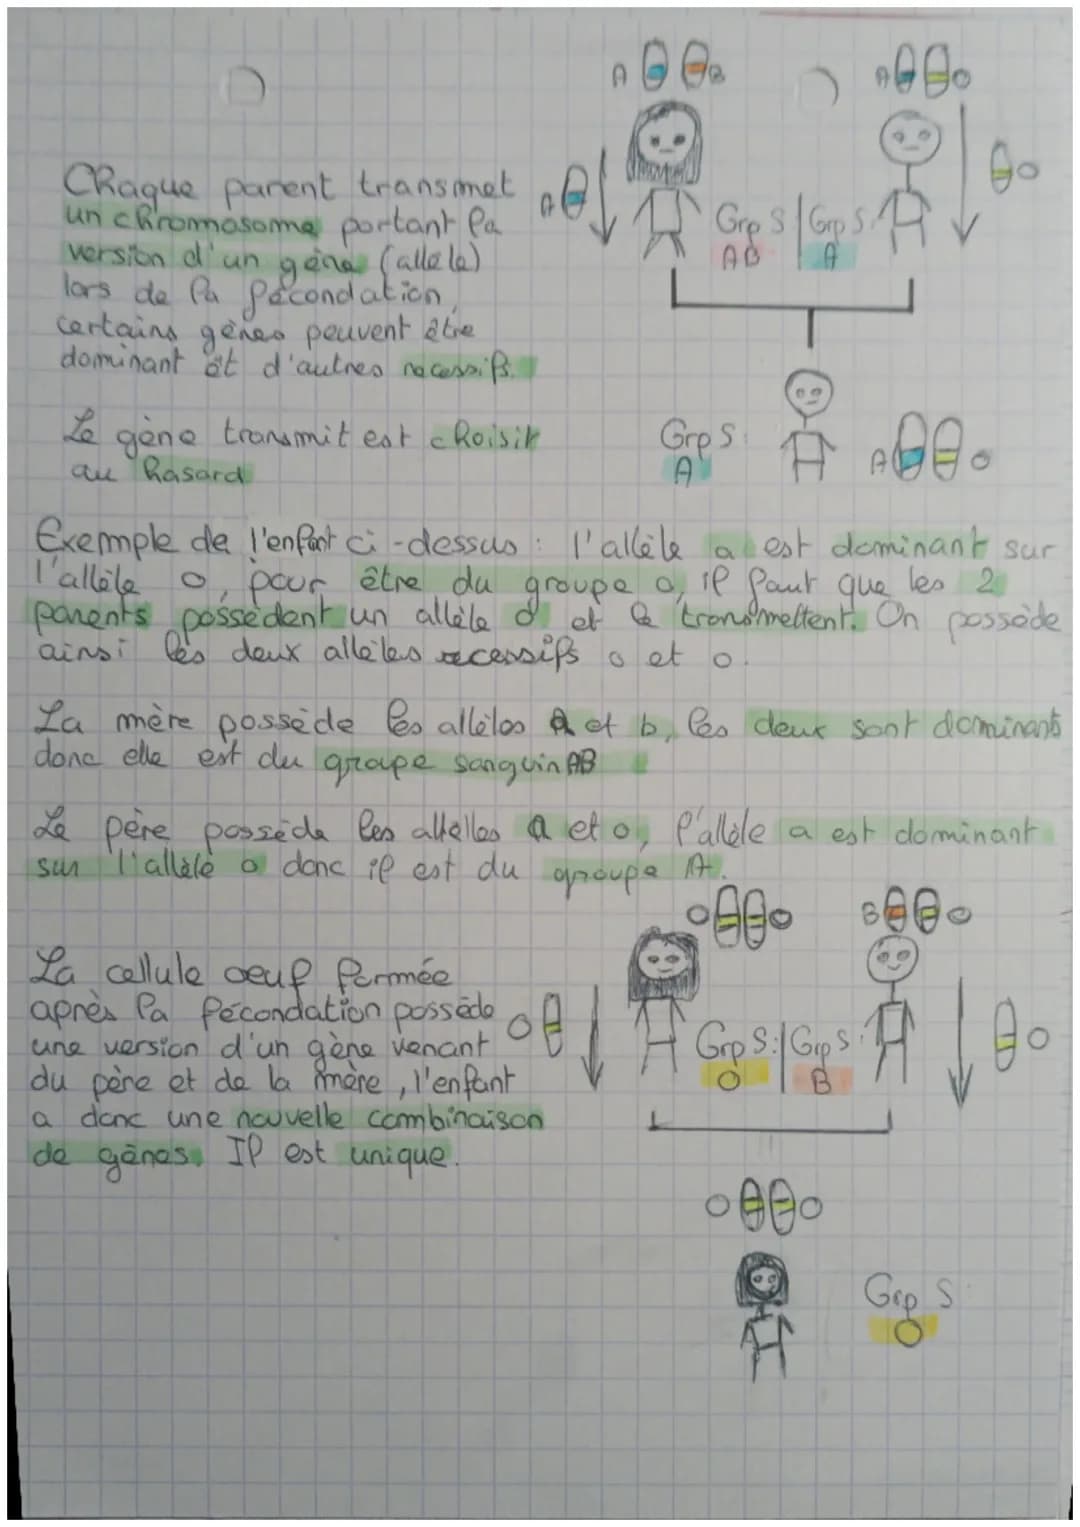 A B A O
Chaque parent transmet
un chromosome portant la
version d'un gène (allèle)
lors de la fécondation,
certains gènes peuvent être
dominant et d'autres récessifs.
A O
Grp S Grp S:
AB A
Le gène transmit est choisit
au hasard
Grp S:
A
A O
Exemple de l'enfant ci-dessus : l'allèle a est dominant sur
l'allèle o, pour être du groupe o, il faut que les 2
parents possèdent un allèle o et le transmettent. On possède
ainsi les deux allèles recessifs o et o.
La mère possède les allèles a et b, les deux sont dominants
donc elle est du groupe sanguin AB
Le père possède les allelles a et o, l'allèle a est dominant
sur l'allèle o donc il est du groupe A.
O O B O
La cellule oeuf formée
après la fécondation possède
une version d'un gène venant
du père et de la mère, l'enfant
a donc une nouvelle combinaison
de gènes. Il est unique.
O O
Grp S: Grp S:
O B
O O
Grp S:
O